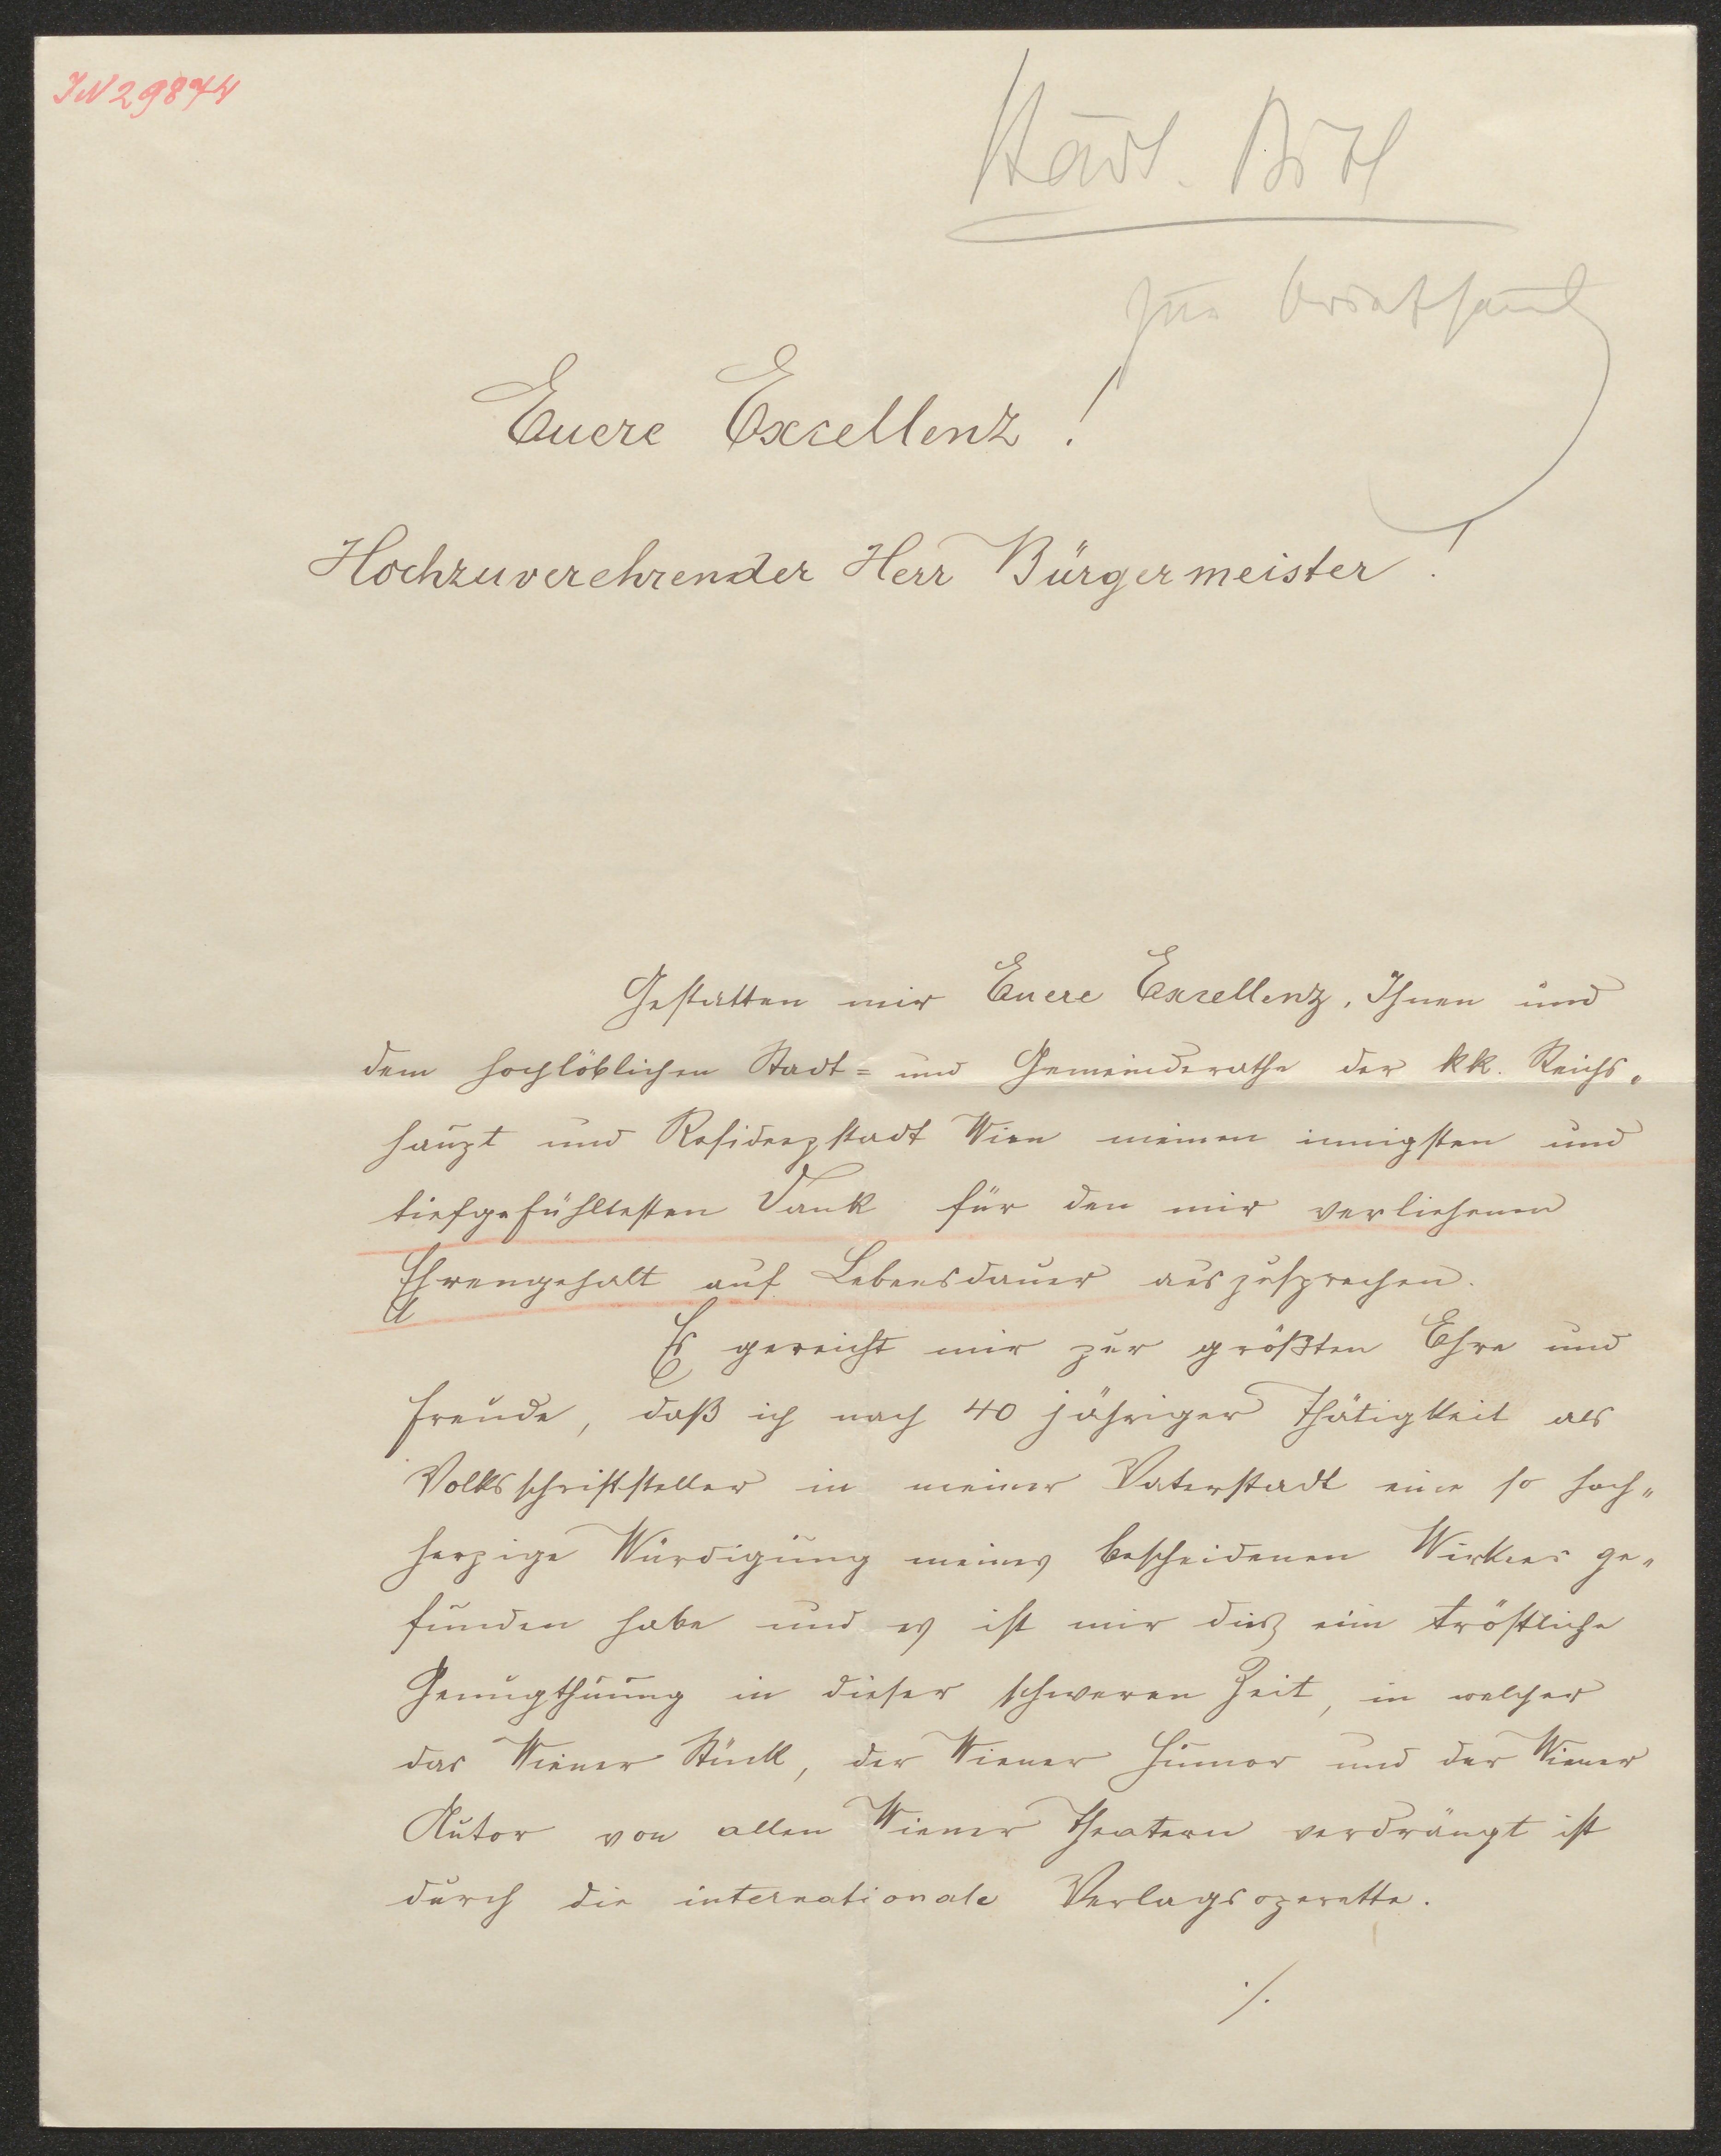 IN 29874
Städt. Bibl
zur Briefsamml
Euere Excellenz!
Hochzuverehrender Herr Bürgermeister!
Gestatten mir Euere Excellenz, Ihnen und
dem hochlöblichen Stadt= und Gemeinderathe der kk. Reichs„
haupt und Residenzstadt Wien meinen innigsten und
tiefgefühltesten Dank für den mir verliehenen
Ehrengehalt auf Lebensdauer auszusprechen.
Es gereicht mir zur größten Ehre und
Freude, daß ich nach 40 jähriger Thätigkeit als
Volksschriftsteller in meiner Vaterstadt eine so hoch„
herzige Würdigung meines bescheidenen Wirkens ge„
funden habe und es ist mir dies eine tröstliche
Genugthuung in dieser schweren Zeit, in welcher
das Wiener Stück, der Wiener Humor und der Wiener
Autor von allen Wiener Theatern verdrängt ist
durch die internationale Verlagsoperette.
./.